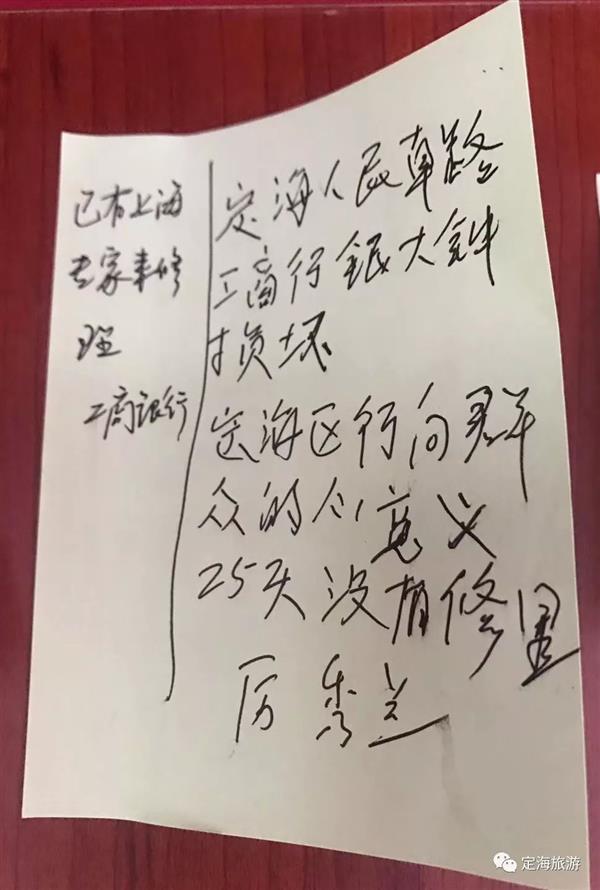 已有上海
专家来修
理
工商银行
定海人民南路
工商行银大钟
损坏
定海区行向群
众的个意义
25天没有修里
厉秀兰
定海旅游